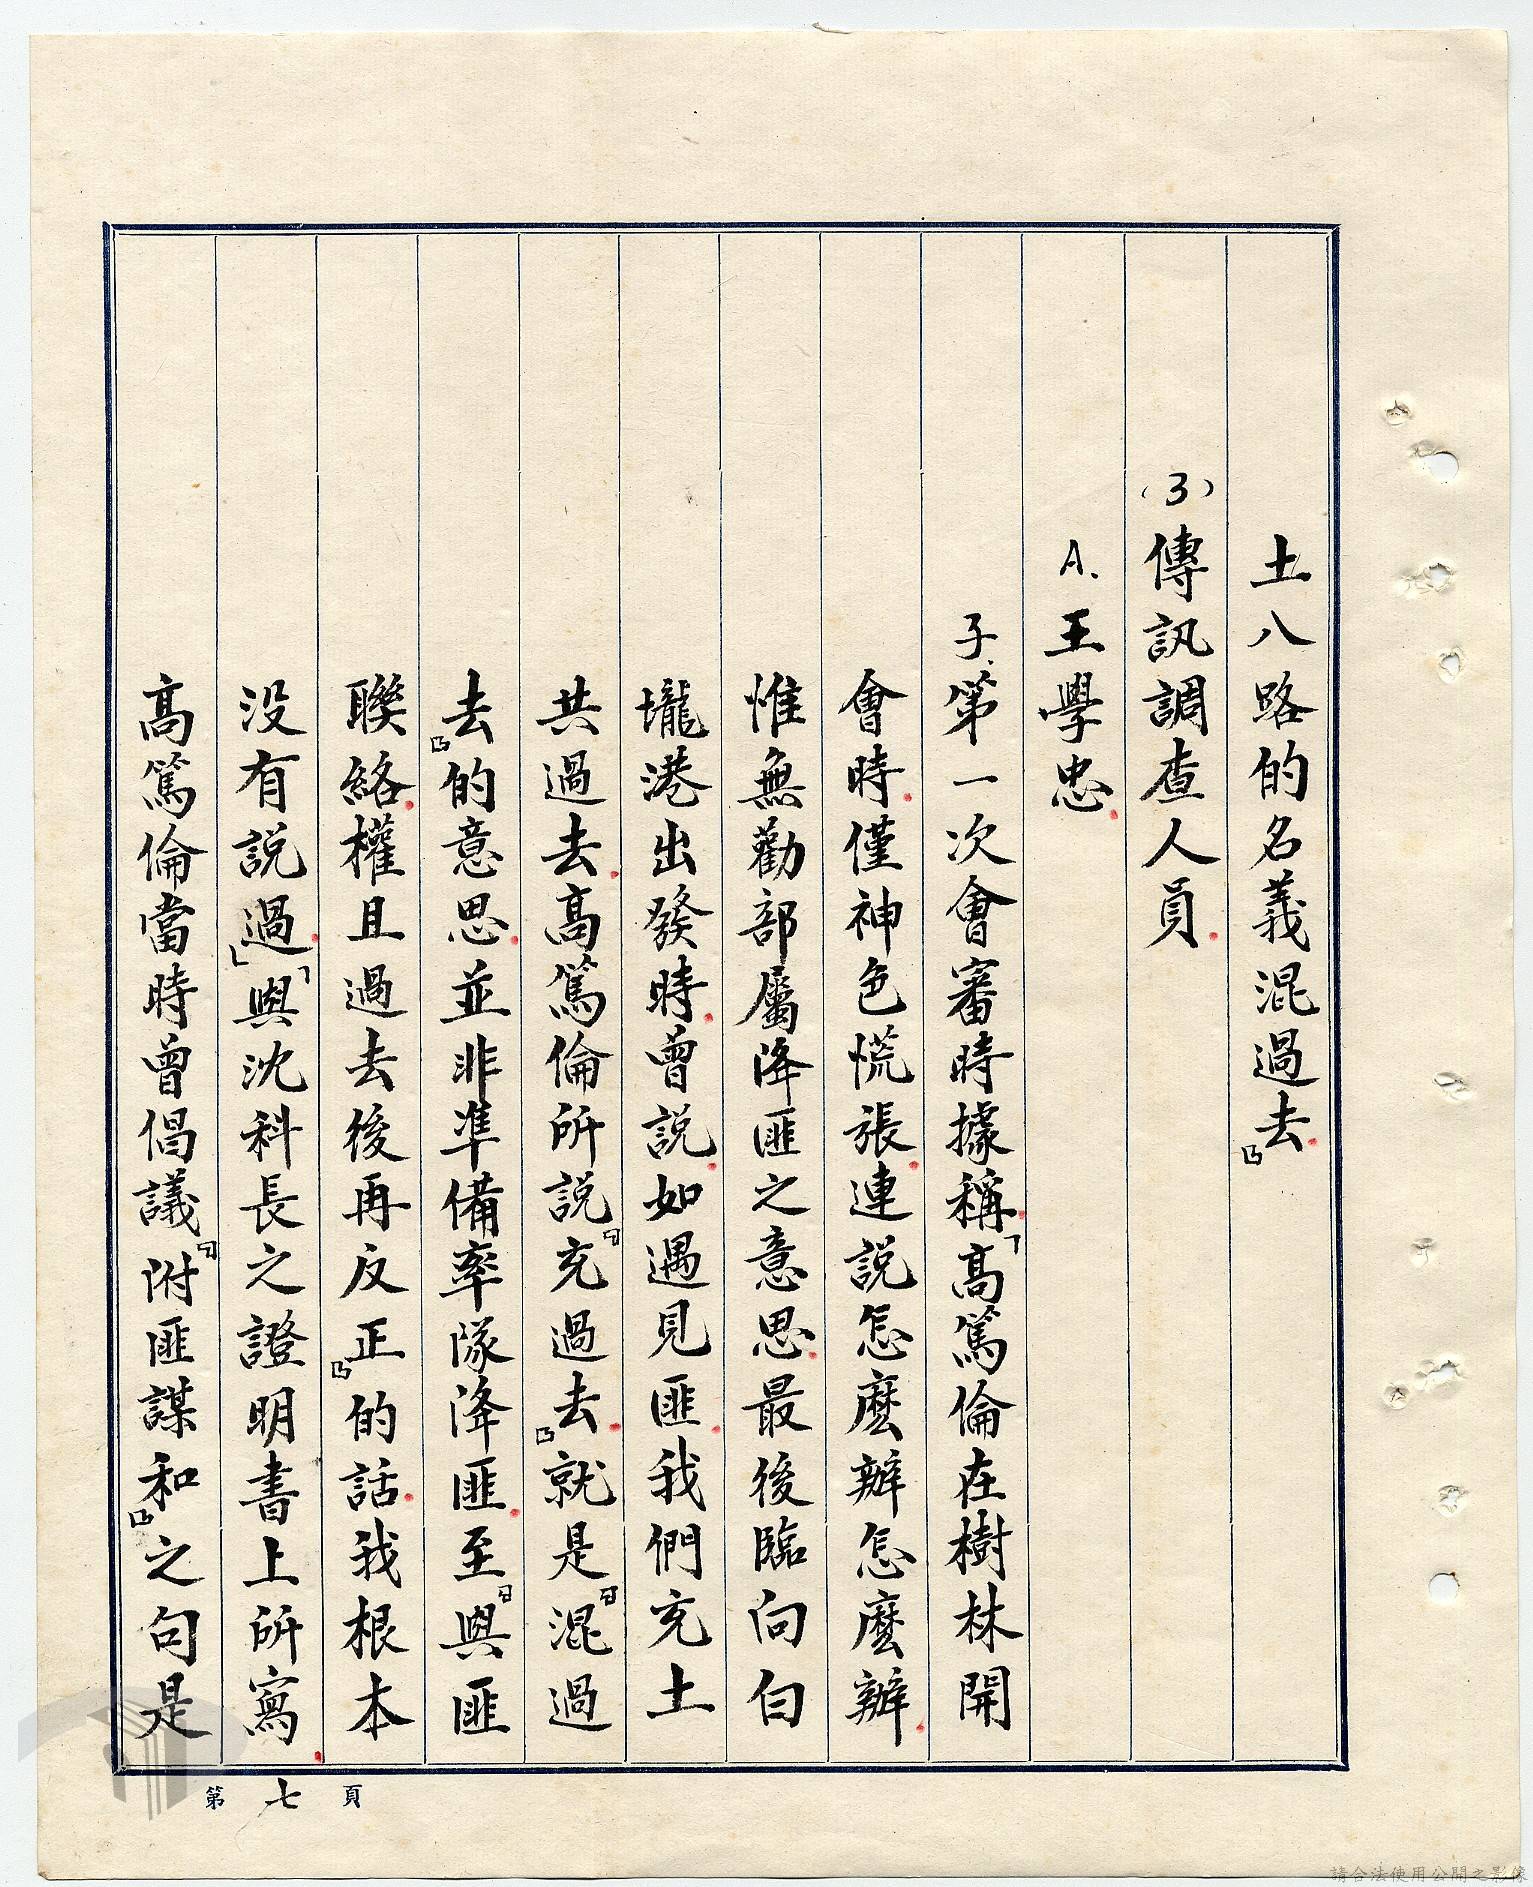 土八路的名義混過去』
(3)傳訊調查人員
A.王學忠
子、第一次會審時據稱「高篤倫在樹林開
會時僅神色慌張連説怎麽辦怎麽辦
惟無勸部屬降匪之意思最後臨向白
壠港出發時曾説如遇見匪我們充土
共過去高篤倫所説『充過去』就是『混過
去』的意思並非準備率隊降匪至『與匪
聯絡權且過去後再反正』的話我根本
没有説過」「與沈科長之證明書上所寫
高篤倫當時曾倡議『附匪謀和』之句是
第七頁
請合法使用公開之影像